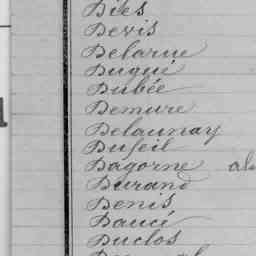 Dies
Devis
Delarue
Dugué
Dubée
Demure
Delaunay
Dufeil
Dagorne al
Durand
Denis
Daucé
Duclos